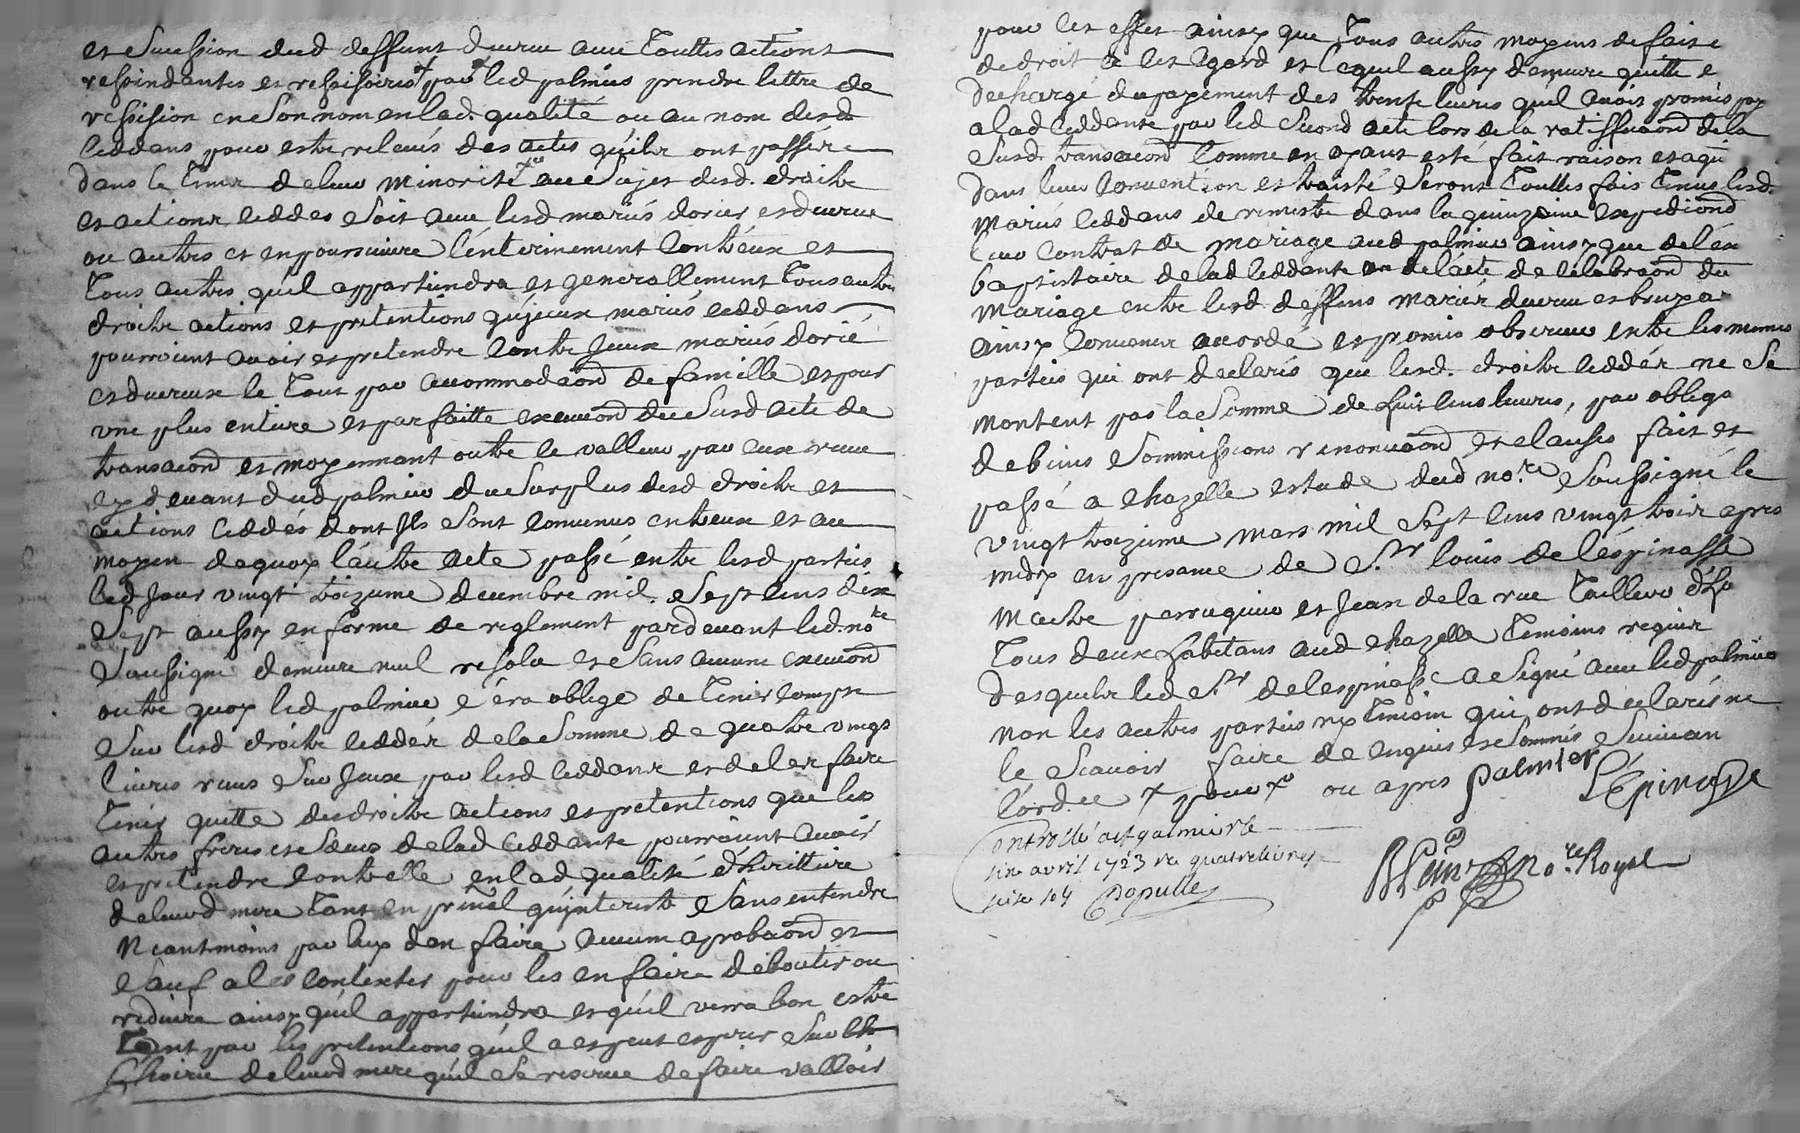 et sucession dud deffunt ducreu avec touttes actions
rescindantes et rescisoires + pour led palmier prendre lettre de
rescision en son nom en lad. qualité ou au nom desd
ceddans pour estre relevés des actes quils ont passés
dans le tems de leur minorité + au sujet desd. droits
et actions ceddes soit avec lesd mariés dorier et ducreu
ou autres et en poursuivre l'enterinement contr'eux et
tous autres quil appartiendra et generallement tous autres
droits actions et pretentions qu'jceux mariés ceddans
pourroient avoir et pretendre contre jceux mariés dorié
et ducreux le tout par accommodaond de famille et pour
une plus entiere et parfaitte execuond du susd acte de
transacond et moyennant outre la valleur par eux receue
cy devant dud palmier du surplus desd droits et
actions ceddés dont jls sont convenus entreux et au
moyen de quoy l'autre acte passé entre lesd parties
led jour vingt troizieme decembre mil sept cens dix
sept aussy en forme de reglement pardevant led. no.re
soussigné demeure nul resolu et sans aucune execuond
outre quoy led palmier sera obligé de tenir compte
sur lesd droits ceddés de la somme de quatre vingts
livres reçus sur jceux par lesd ceddans et de les faire
tenir quitte des droits actions et pretentions que les
autres freres et seurs de lad ceddante pourroient avoir
et pretendre contr'elle en lad qualité d'heritiere
de leurd mere tant en prinal qu'interests sans entendre
neantmoins par luy d'en faire aucune aprobaond et
sauf a les contester pour les en faire debouter ou
reduire ainsy quil appartiendra et quil verra bon estre
tant par les pretentions quil a et peut esperer sur lh
hoirie de leurd mere quil se reserve de faire valloir
pour cet effet ainsy que tous autres moyens de fait e
de droit a cet egard et lequel aussy demeure quitte e
dechargé du payement des trente livres quil avoit promis pay
a lad ceddante par led second acte lors de la ratifficaond de la
susd. transacond comme en ayant esté fait raison et a qui
dans leur convention et traisté seront touttes fois tenus lesd.
mariés ceddans de remettre dans la quinzaine expediond
leur contrat de mariage aud palmier ainsy que de l'ex
baptistaire de lad ceddante et de l'acte de celebraond du
mariage entre lesd deffuns mariés ducreu et bruya
ainsy convenu accordé et promis observer entre les mêmes
parties qui ont declarés que lesd. droits ceddés ne se
montent pas la somme de huit cens livres, par obliga
de biens soumissions renonciaond et clauses fait et
passé a chazelle estude dud no.re soussigné le
vingt troizieme mars mil sept cens vingt trois apres
midy en presance de S.r louis de lespinasse
maitre perruquier et jean de la rue tailleur d'ha
tous deux habitans aud chazelle temoins requis
desquels led S.r delespinasse a signé avec led palmier
non les autres parties ny temoin qui ont declarés ne
le scavoir faire de enquis et sommés suivan
l'ord.ce + pour + ou apres palmier L'Epinasse
Controllé a st galmier le
six avril 1723 re quatre livres
seize s 4 d Populle
no.re Royal